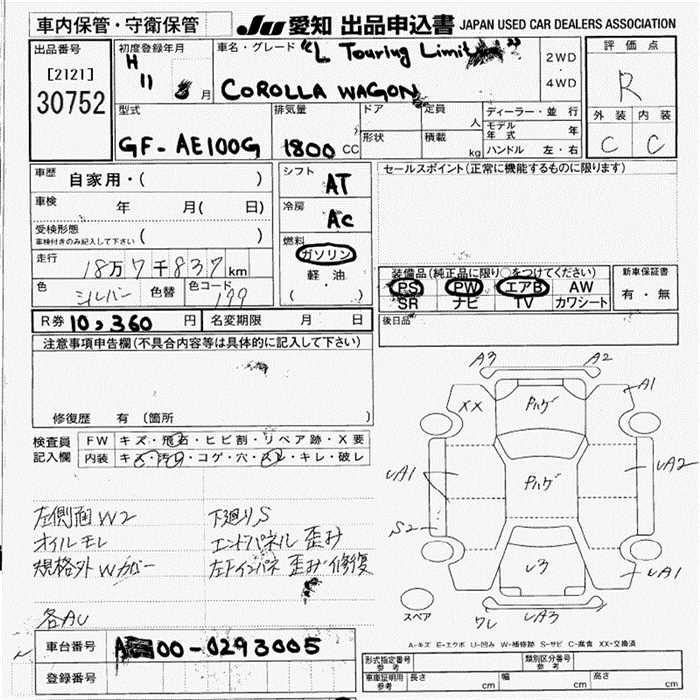 車内保管・守衛保管
JU 愛知 出品申込書 JAPAN USED CAR DEALERS ASSOCIATION
出品番号
[2121]
30752
初度登録年月
H 11 月
車名・グレード "L Touring Limit
COROLLA WAGON
2WD
4WD
評価点
R
外装 内装
C C
型式
GF-AE100G
排気量
1800 CC
ドア
形状
定員 人
積載 kg
ディーラー・並行
モデル年式 年
ハンドル 左・右
車歴
自家用・( )
車検 年 月( 日)
受検形態
車検付きのみ記入して下さい ( )
走行
18万7千837km
色 シルバー 色替 色コード 199
シフト AT
冷房 AC
燃料
ガソリン
軽・油
( )
セールスポイント(正常に機能するものに限ります)
装備品(純正品に限り○をつけてください)
PS PW エアB AW
SR ナビ TV カワシート
新車保証書
有・無
後日品
R券 10,360 円 名変期限 月 日
注意事項申告欄(不具合内容等は具体的に記入して下さい)
修復歴 有 (箇所 )
検査員
記入欄
FW キズ・飛石・ヒビ割・リペア跡・X要
内装 キズ・汚れ・コゲ・穴・スレ・キレ・破レ
左側面W2 下廻りS
オイルモレ エンドパネル歪み
規格外Wカバー 左Fインパネ歪み修復
各AU
A3 A2
XX A1
Pハゲ
UA1 Pハゲ UA2
S2
U3 UA1
ワレ UA3
スペア
A-キズ E-エクボ U-凹み W-補修跡 S-サビ C-腐食 XX-交換済
車台番号 00-0293005
登録番号
形式指定番号
参考
類別区分番号
参考
車庫証明用
参考
長さ cm 幅 cm 高さ cm